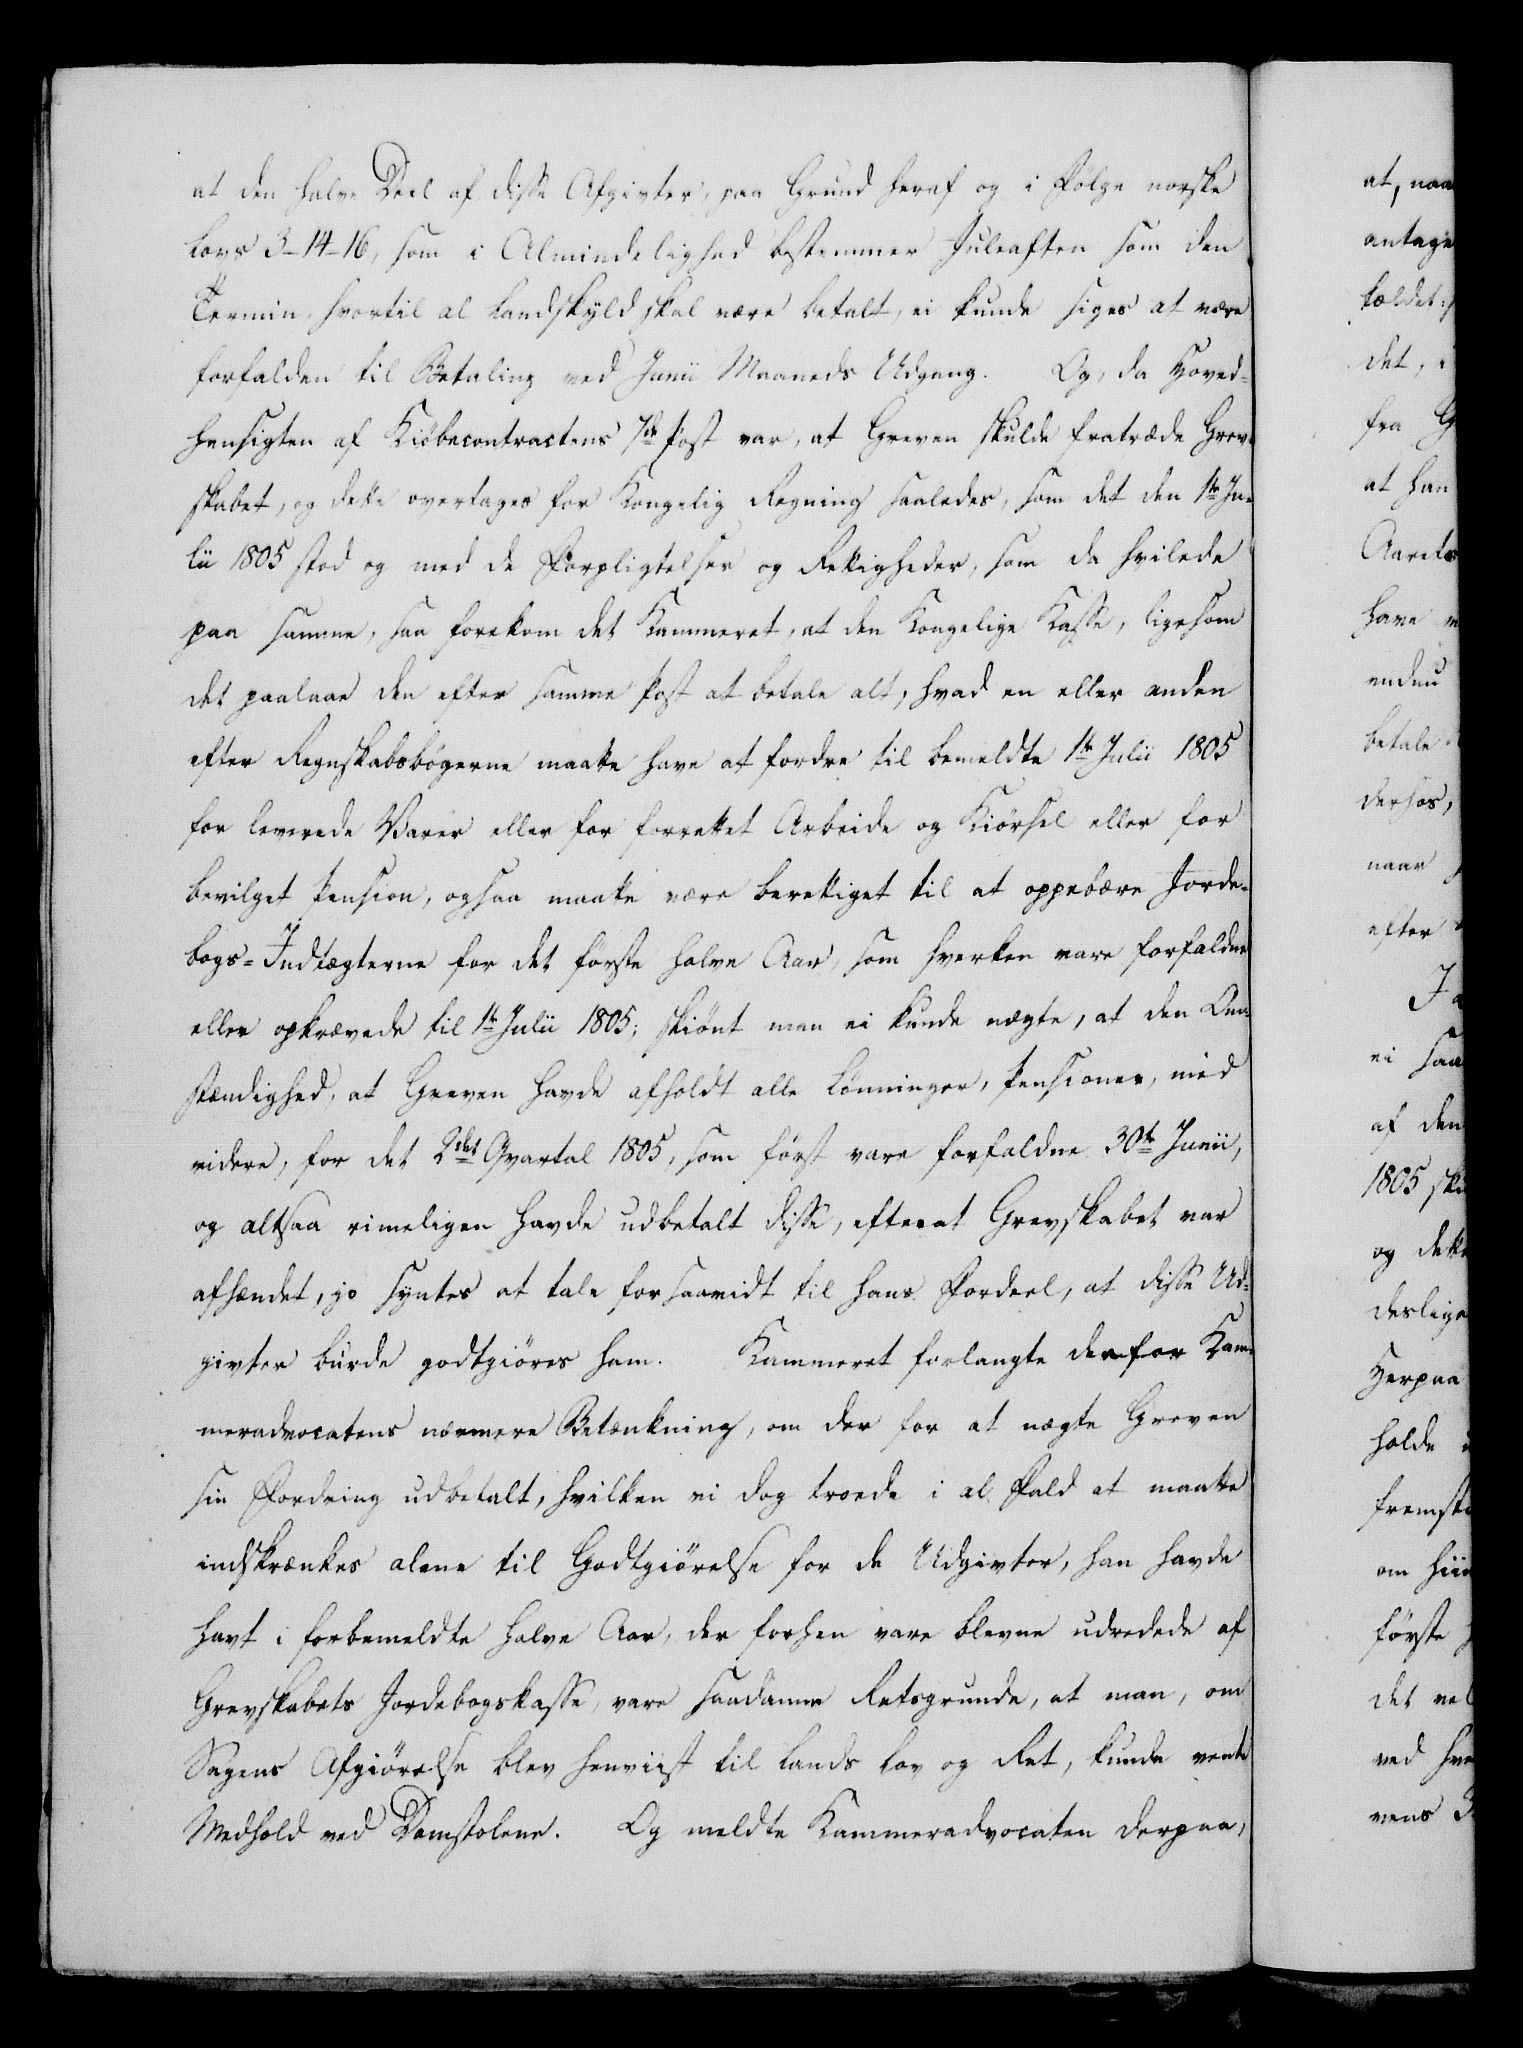 at den halve Deel af disse Afgivter, paa Grund heraf og i Følge norske
Lovs 3-14-16, som i Almindelighed bestemmer Juleaften som den
Termin, hvortil al Landskyld skal være betalt, ei kunde siges at være
forfalden til Betaling ved Junii Maaneds Udgang. Og, da Hoved-
hensigten af Kiöbecontractens 7de Post var, at Greven skulde fratræde Grev-
skabet, og dette overtages for Kongelig Regning saaledes, som det den 1te Ju-
lii 1805 stod og med de Forpligtelser og Rettigheder, som da hvilede
paa samme, saa forekom det Kammeret, at den Kongelige Kasse, ligesom
det paalaae den efter samme Post at betale alt, hvad en eller anden
efter Regnskabsbögerne maatte have at fordre til bemeldte 1te Julii 1805
for leverede Varer eller for forrettet Arbeide og Kiörsel eller for
bevilget Pension, ogsaa maatte være berettiget til at oppebære Jorde-
bogs-Indtægterne for det förste halve Aar, som hverken vare forfaldne
eller opkrævede til 1te Julii 1805; skiönt man ei kunde nægte, at den Om-
stændighed, at Greven havde afholdt alle Lönninger, Pensioner, med
videre, for det 2det Qvartal 1805, som först vare forfaldne 30te Junii,
og altsaa rimeligen havde udbetalt disse, efterat Grevskabet var
afhændet, jo syntes at tale forsaavidt til hans Fordeel, at disse Ud-
givter burde godtgiöres ham. Kammeret forlangte derfor Kam-
meradvocatens nærmere Betænkning, om der for at nægte Greven
sin Fordring udbetalt, hvilken vi dog troede i al Fald at maatte
indskrænkes alene til Godtgiörelse for de Udgivter, han havde
havt i forbemeldte halve Aar, der forhen vare blevne udredede af
Grevskabets Jordebogskasse, vare saadanne Retsgrunde, at man, om
Sagens Afgiörelse blev henviist til Lands Lov og Ret, kunde vente
Medhold ved Domstolene. Og meldte Kammeradvocaten derpaa,
at, naa
antage
kældet:
det,
fra G
at han
Aarets
have
endnu
betale
derhos,
naar
efter
ei saa
af den
1805 sku
og dette
deslige
Herpaa
holde
fremst
om hii
förste
det vel
ved hve
vens